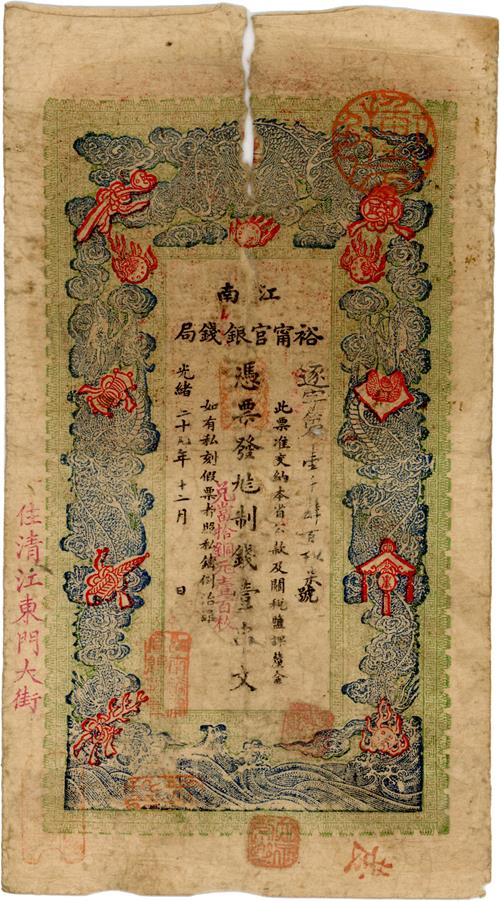 江南
裕甯官銀錢局
逐字第壹千肆百 號
此票准交納本省公款及關稅鹽課釐金
憑票發兌制錢壹串文
兌當拾銅元壹百枚
如有私刻假票者照私鑄例治罪
光緒二十九年十二月 日
住清江東門大街